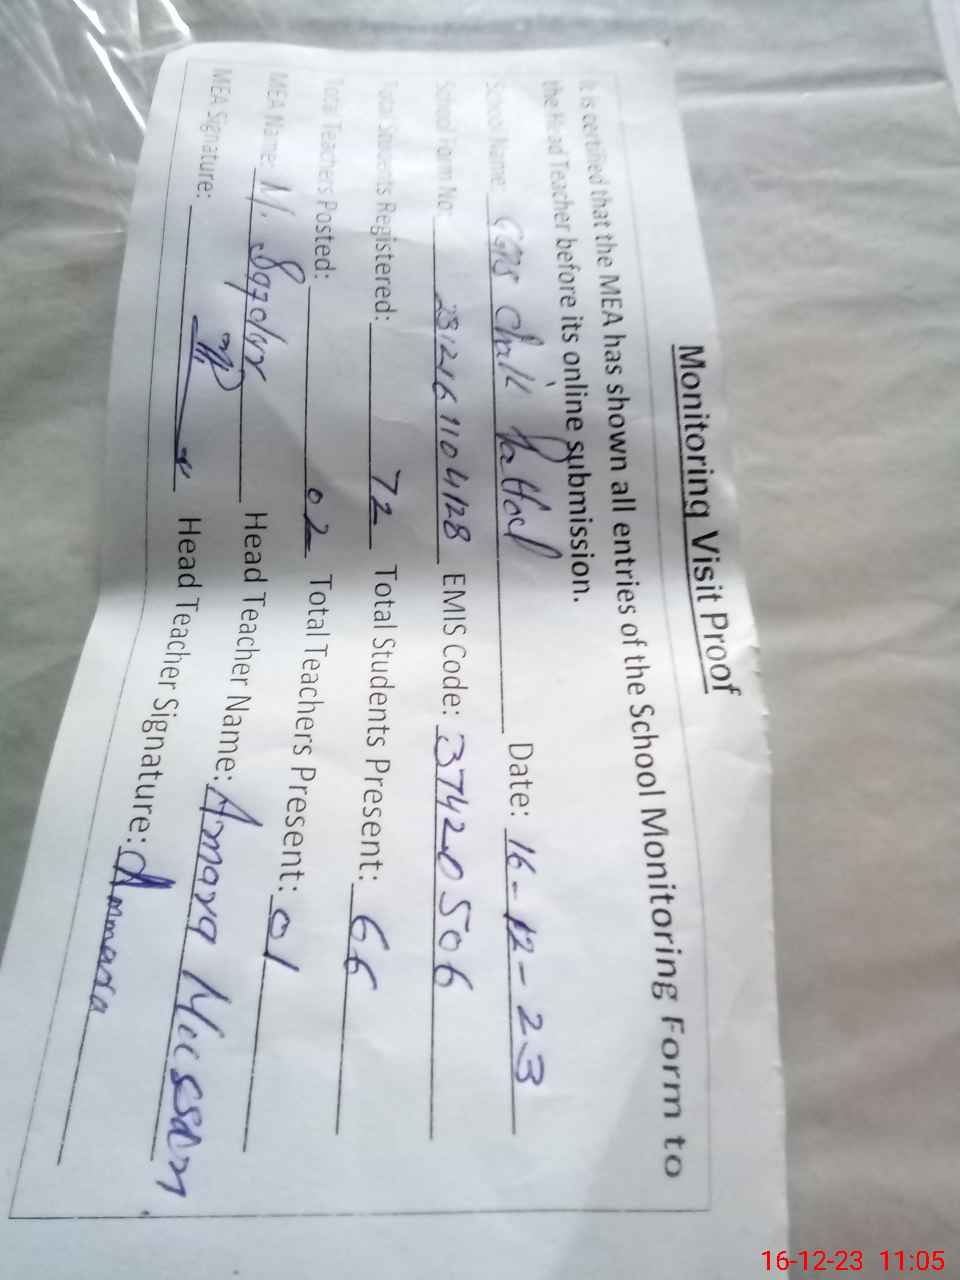 Monitoring Visit Proof
It is certified that the MEA has shown all entries of the School Monitoring Form to
the Head Teacher before its online submission.
School Name: GGPS Chak Date: 16-12-23
School Form No: 2312161104128 EMIS Code: 37420506
Total Students Registered: 72 Total Students Present: 66
Total Teachers Posted: 02 Total Teachers Present: 01
MEA Name: M. Safdar Head Teacher Name: Amara
MEA Signature: Head Teacher Signature: Ammara
16-12-23 11:05